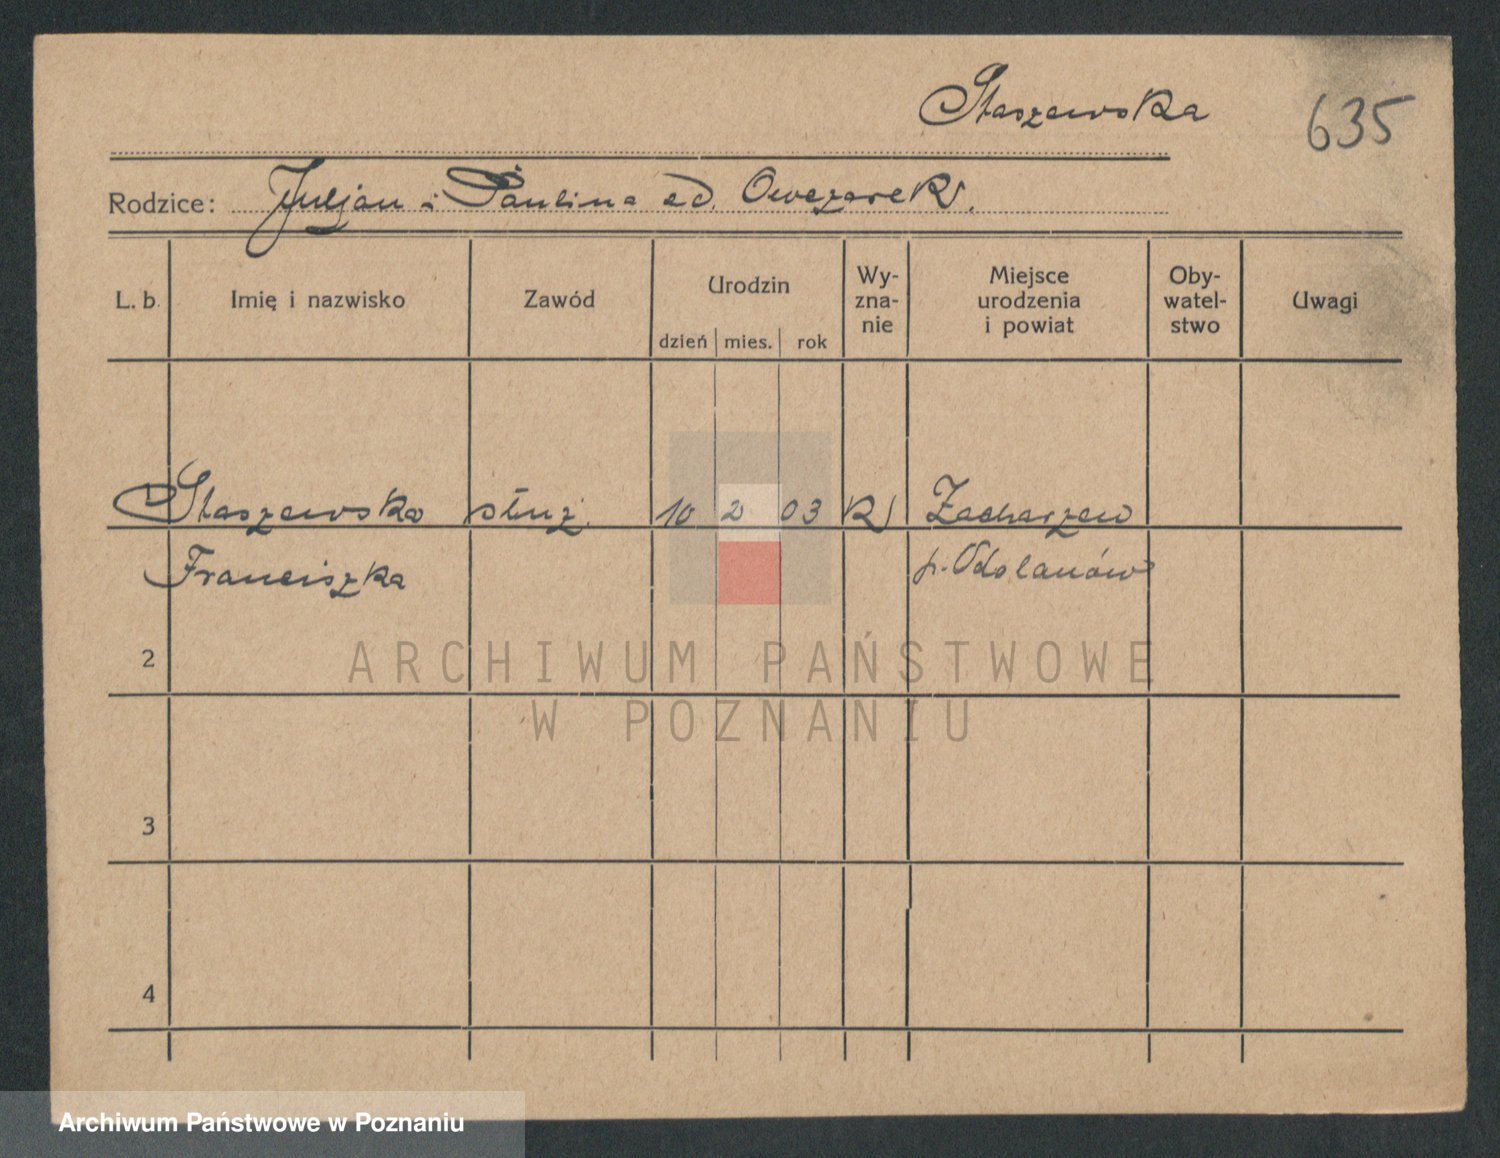 Staszewska
635
Rodzice: Juljan i Paulina zd. Owczarek
L. b. Imię i nazwisko Zawód Urodzin Wy- Miejsce Oby- Uwagi
zna- urodzenia watel-
nie i powiat stwo
dzień mies. rok
1 Staszewska służ. 10 2 03 Zacharzew
Franciszka p. Odolanów
2
ARCHIWUM PAŃSTWOWE
W POZNANIU
3
4
Archiwum Państwowe w Poznaniu